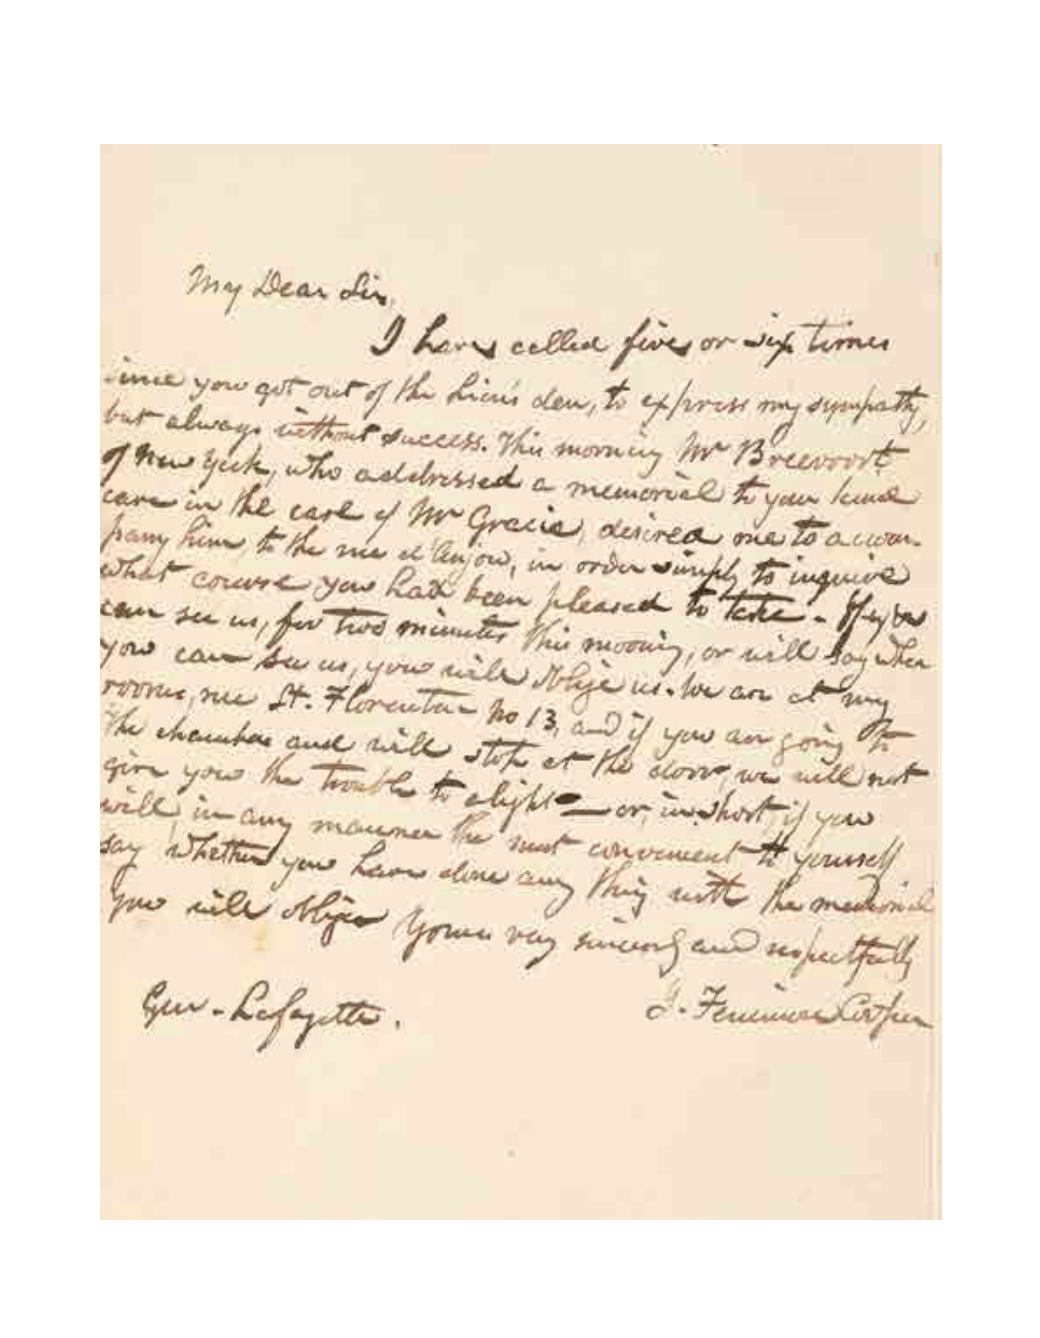 My Dear Sir,
I have called five or six times
since you got out of the Lion's den, to express my sympathy,
but always without success. This morning Mr Breevoort
of New York, who addressed a memorial to your kind
care in the case of Mr Gracie, desired me to accom-
pany him, to the rue d'Anjou, in order simply to inquire
what course you had been pleased to take - If you
can see us, for two minutes this morning, or will say when
you can see us, you will oblige us. We are at my
rooms, rue St. Florentin No 13, and if you are going to
the chamber and will stop at the door, we will not
give you the trouble to alight — or, in short, if you
will, in any manner the most convenient to yourself
say whether you have done any thing with the memorial
you will oblige Yours very sincerely and respectfully
J. Fenimore Cooper
Gen - Lafayette.